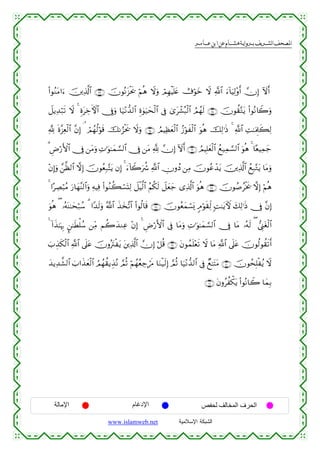 المصحف الشريف برواية هشام عن ابن عامر
أَلَآ إِنَّ أَوْلِيَآءَ ٱللَّهِ لَا خَوْفٌ عَلَيْهِمْ وَلَا هُمْ يَحْزَنُونَ ۝ ٱلَّذِينَ ءَامَنُوا۟
وَكَانُوا۟ يَتَّقُونَ ۝ لَهُمُ ٱلْبُشْرَىٰ فِى ٱلْحَيَوٰةِ ٱلدُّنْيَا وَفِى ٱلْءَاخِرَةِ ۚ لَا تَبْدِيلَ
لِكَلِمَٰتِ ٱللَّهِ ۚ ذَٰلِكَ هُوَ ٱلْفَوْزُ ٱلْعَظِيمُ ۝ وَلَا يَحْزُنكَ قَوْلُهُمْ ۘ إِنَّ ٱلْعِزَّةَ لِلَّهِ
جَمِيعًا ۚ هُوَ ٱلسَّمِيعُ ٱلْعَلِيمُ ۝ أَلَآ إِنَّ لِلَّهِ مَن فِى ٱلسَّمَٰوَٰتِ وَمَن فِى ٱلْأَرْضِ ۗ
وَمَا يَتَّبِعُ ٱلَّذِينَ يَدْعُونَ مِن دُونِ ٱللَّهِ شُرَكَآءَ ۚ إِن يَتَّبِعُونَ إِلَّا ٱلظَّنَّ وَإِنْ
هُمْ إِلَّا يَخْرُصُونَ ۝ هُوَ ٱلَّذِى جَعَلَ لَكُمُ ٱلَّيْلَ لِتَسْكُنُوا۟ فِيهِ وَٱلنَّهَارَ مُبْصِرًا ۚ
إِنَّ فِى ذَٰلِكَ لَءَايَٰتٍ لِّقَوْمٍ يَسْمَعُونَ ۝ قَالُوا۟ ٱتَّخَذَ ٱللَّهُ وَلَدًا ۗ سُبْحَٰنَهُۥ ۖ هُوَ
ٱلْغَنِىُّ ۖ لَهُۥ مَا فِى ٱلسَّمَٰوَٰتِ وَمَا فِى ٱلْأَرْضِ ۚ إِنْ عِندَكُم مِّن سُلْطَٰنٍۭ بِهَٰذَآ ۚ
أَتَقُولُونَ عَلَى ٱللَّهِ مَا لَا تَعْلَمُونَ ۝ قُلْ إِنَّ ٱلَّذِينَ يَفْتَرُونَ عَلَى ٱللَّهِ ٱلْكَذِبَ
لَا يُفْلِحُونَ ۝ مَتَٰعٌ فِى ٱلدُّنْيَا ثُمَّ إِلَيْنَا مَرْجِعُهُمْ ثُمَّ نُذِيقُهُمُ ٱلْعَذَابَ ٱلشَّدِيدَ
بِمَا كَانُوا۟ يَكْفُرُونَ ۝
الحرف المخالف لحفص الإدغام الإمالة
الشبكة الإسلامية www.islamweb.net